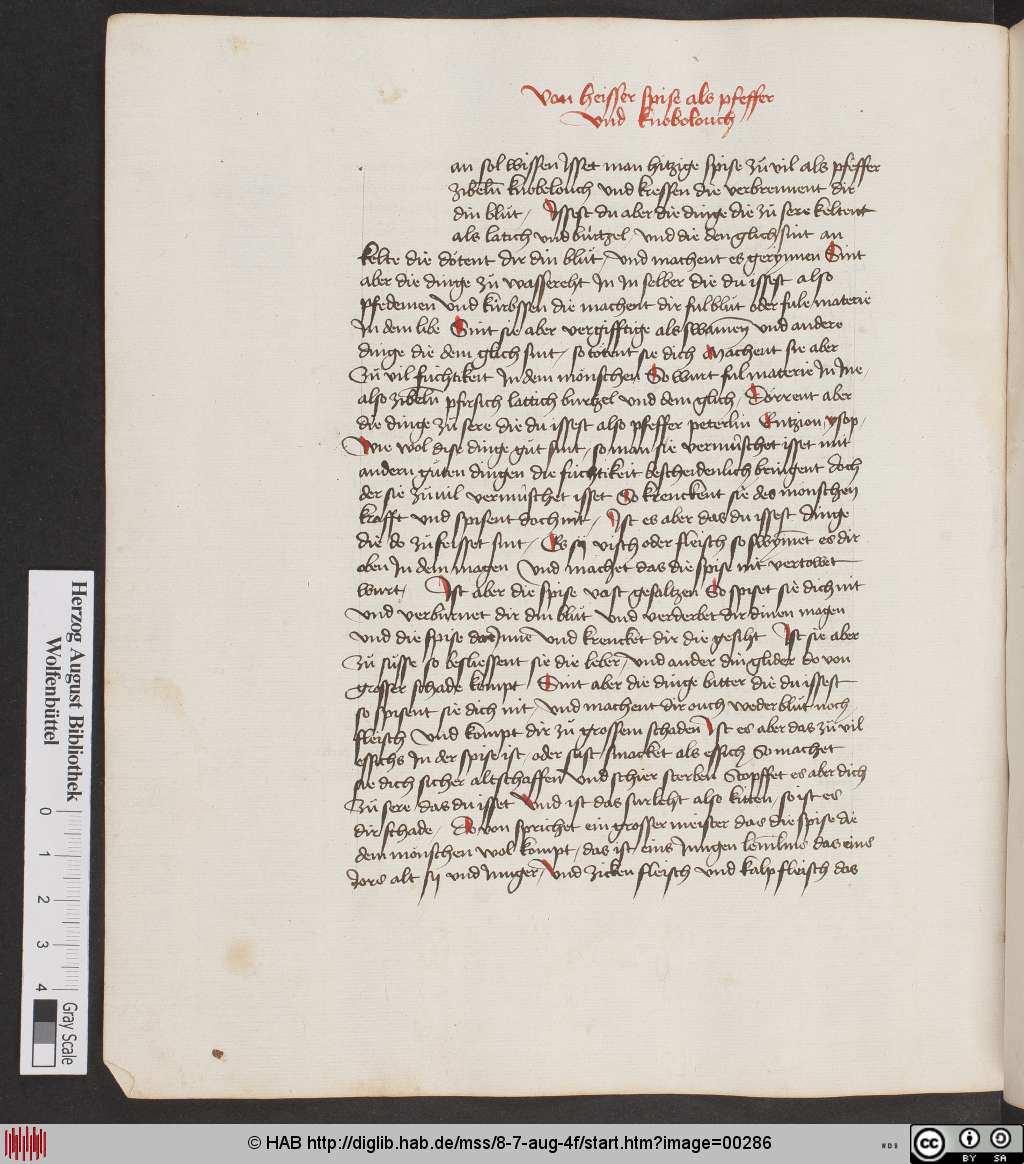 Von heisser spise als pfeffer
vnd knobolouch
an sol wissen Isset man hitzige spise zů vil als pfeffer
zibeln̄ knobelouch vnd kressen die verbrennent dir
din blůt / Issest du aber die dinge die zů sere keltent
als latich vnd bürtzel / vnd die den glich sint an
kelte die dötent dir din blůt / vnd machent es gerynnen Sint
aber die dinge zů wassereht In In selber die du issest also
pfedemen vnd kürbssen die machent dir ful blůt oder fule materie
In dem libe Sint sie aber vergifftige als swamen vnd andere
dinge die dem glich sint / so tötent sie dich Machent sie aber
Zů vil füchtikeit In dem mönschen So wurt ful materie In Ime /
also zibeln̄ pfirsich lattich burtzel vnd dem glich / Dörrent aber
die dinge zů sere die du issest also pfeffer peterlin Entzion / ysop /
Wie wol dise dinge gůt sint / so man sie vermüschet isset mit
andern gůten dingen die füchtikeit bescheidenlich bringent doch
der sie zů vil vermüschet isset So krenckent sie des mönschen
krafft vnd spisent doch nit / Ist es aber das du issest dinge
die do zů feisset sint / Es sy visch oder fleisch so swymet es dir
oben In dem magen vnd machet das die spise nit vertöwet
wurt / Ist aber die spise vast gesaltzen So spiset sie dich nit
vnd verburnet dir din blůt vnd verderbet dir dinen magen
vnd die spise dar Inne vnd krencket dir die gesiht Ist sie aber
Zů süsse so besliessent sie die leber / vnd ander din glider do von
grosser schade kompt / Sint aber die dinge bitter die du issest
so spisent sie dich nit / vnd machent dir ouch weder blůt noch
fleisch vnd kompt dir zů grossem schaden Ist es aber das zů vil
essichs In der spise ist / oder sust smacket als essich So machet
sie dich sicher altschaffen vnd schier sterben Stopffet es aber dich
Zů sere das du isset Vnd ist das surleht also kitten / so ist es
dir schade / Do von sprichet ein grosser meister das die spise die
dem mönschen wol kompt / das ist eins Jungen das eins
Jors alt sy vnd Junger / Vnd zicken fleisch vnd kalpfleisch das
Herzog August Bibliothek
Wolfenbüttel
0 1 2 3 4
Gray Scale
© HAB http://diglib.hab.de/mss/8-7-aug-4f/start.htm?image=00286
WDB
cc
BY SA